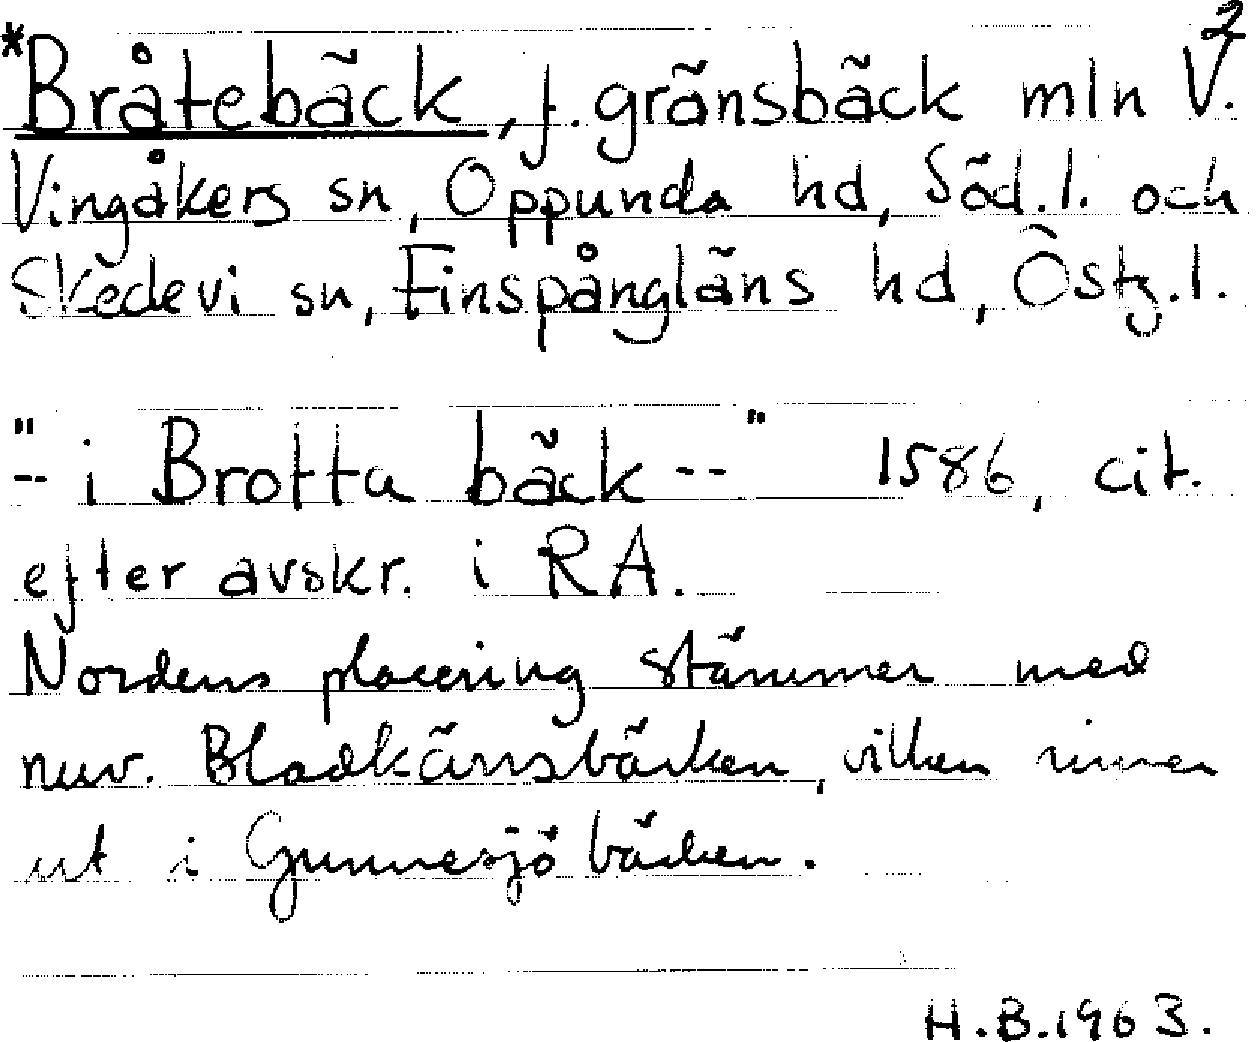 2
*Bråtebäck, f. gränsbäck mln V.
Vingåkers sn, Oppunda hd, Söd.l. och
Skedevi sn, Finspångläns hd, Östg.l.
"-- i Brotta bäck --" 1586, cit.
efter avskr. i RA.
Nordens placering stämmer med
nuv. Bladkärrsbäcken, vilken rinner
ut i Gunnesjöbäcken.
H.B.1963.